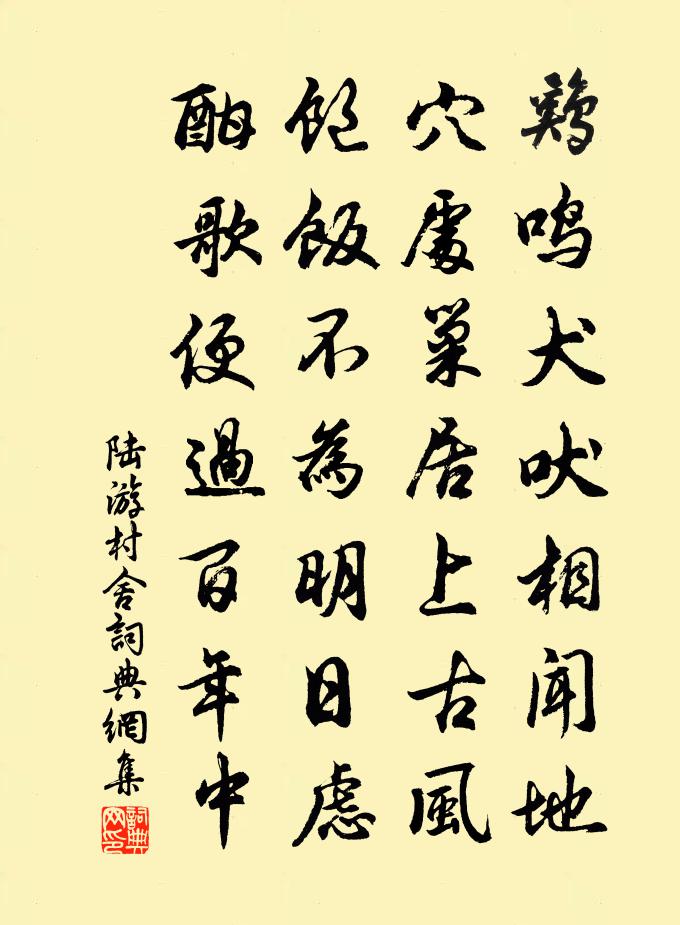 鷄鸣犬吠相闻地
穴處巢居上古風
飽飯不為明日慮
酣歌便過百年中
陆游村舍詞典網集
詞典网印